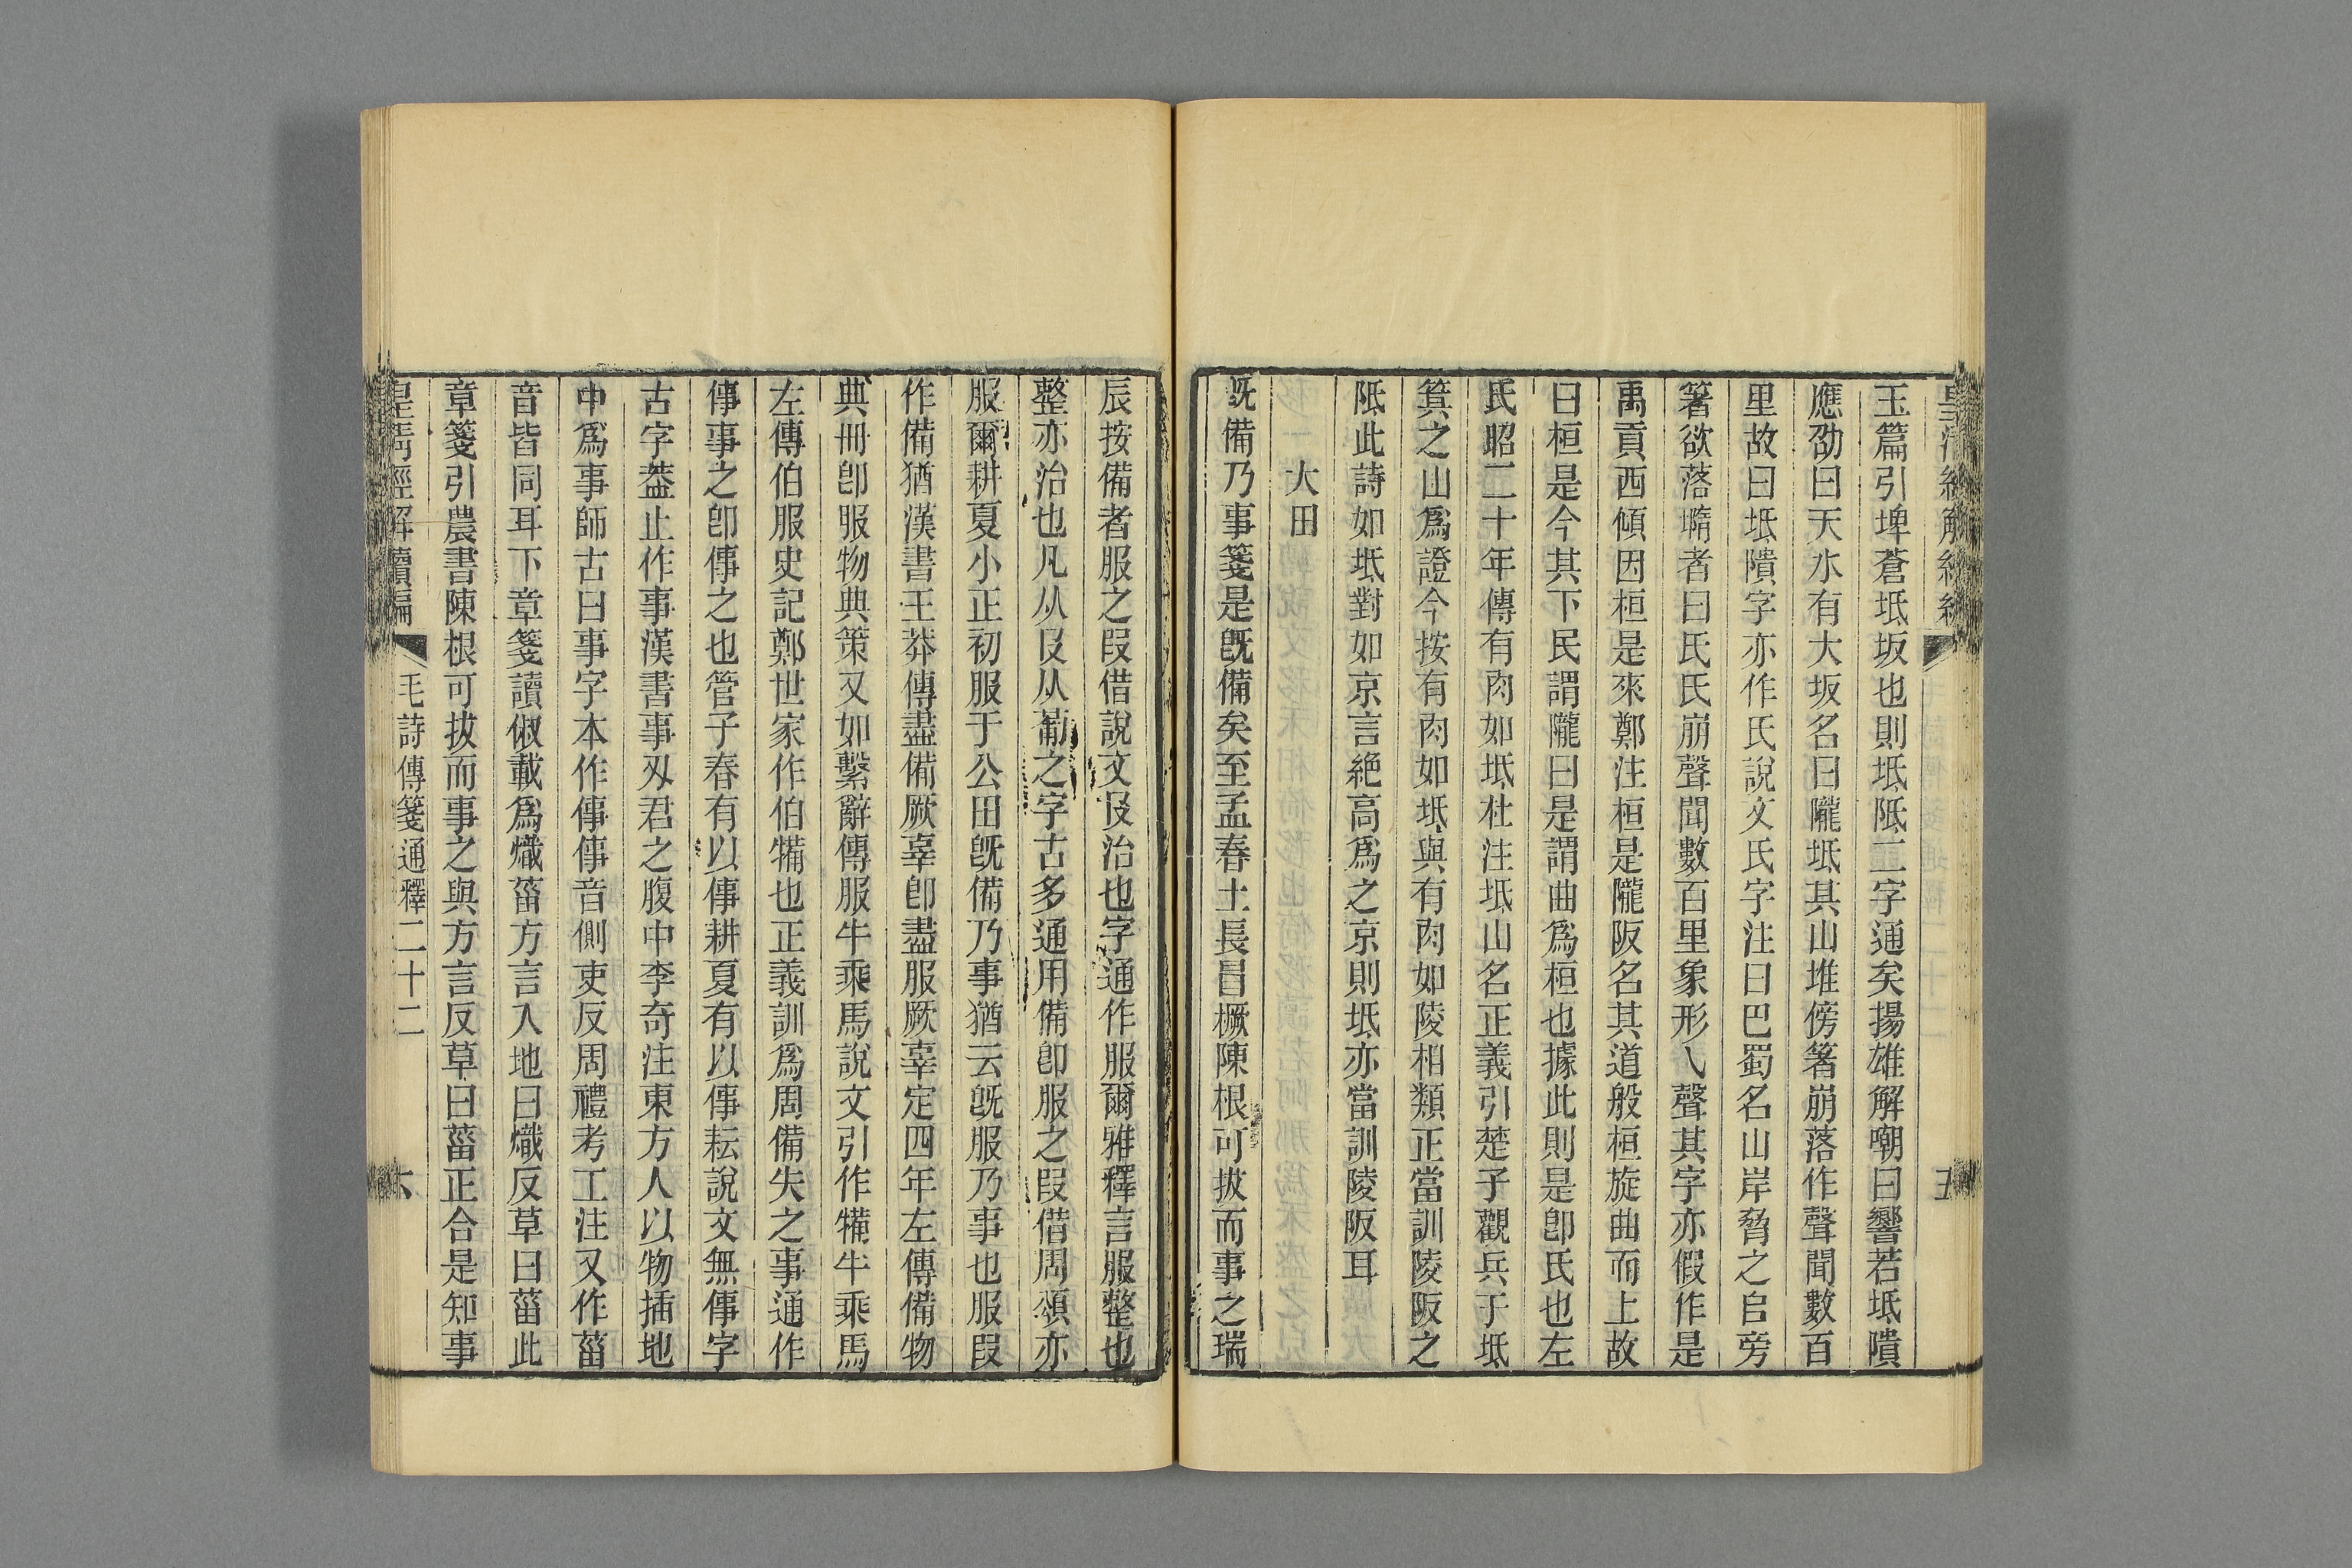 玉篇引埤蒼坻坂也則坻阺二字通矣揚雄解嘲曰響若坻隤
應劭曰天水有大坂名曰隴坻其山堆傍箸崩落作聲聞數百
里故曰坻隤字亦作氏說文氏字注曰巴蜀名山岸脅之𠂤旁
箸欲落㯐者曰氏氏崩聲聞數百里象形乁聲其字亦假作是
禹貢西傾因桓是來鄭注桓是隴阪名其道般桓旋曲而上故
曰桓是今其下民謂隴曰是謂曲爲桓也據此則是卽氏也左
氏昭二十年傳有肉如坻杜注坻山名正義引楚子觀兵于坻
箕之山爲證今按有肉如坻與有肉如陵相類正當訓陵阪之
阺此詩如坻對如京言絶高爲之京則坻亦當訓陵阪耳
大田
旣備乃事箋是旣備矣至孟春土長冒橛陳根可拔而事之瑞
辰按備者服之叚借說文𠬝治也字通作服爾雅釋言服整也
整亦治也凡从𠬝从𤰇之字古多通用備卽服之叚借周頌亦
服爾耕夏小正初服于公田旣備乃事猶云旣服乃事也服叚
作備猶漢書王莽傳盡備厥辜卽盡服厥辜定四年左傳備物
典冊卽服物典策又如繫辭傳服牛乘馬說文引作犕牛乘馬
左傳伯服史記鄭世家作伯犕也正義訓爲周備失之事通作
傳事之卽傳之也管子春有以倳耕夏有以倳耘說文無倳字
古字葢止作事漢書事刄君之腹中李奇注東方人以物插地
中爲事師古曰事字本作倳倳音側吏反周禮考工注又作菑
音皆同耳下章箋讀俶載爲熾菑方言入地曰熾反草曰菑此
章箋引農書陳根可拔而事之與方言反草曰菑正合是知事
皇淸經解續編
毛詩傳箋通釋二十二
六